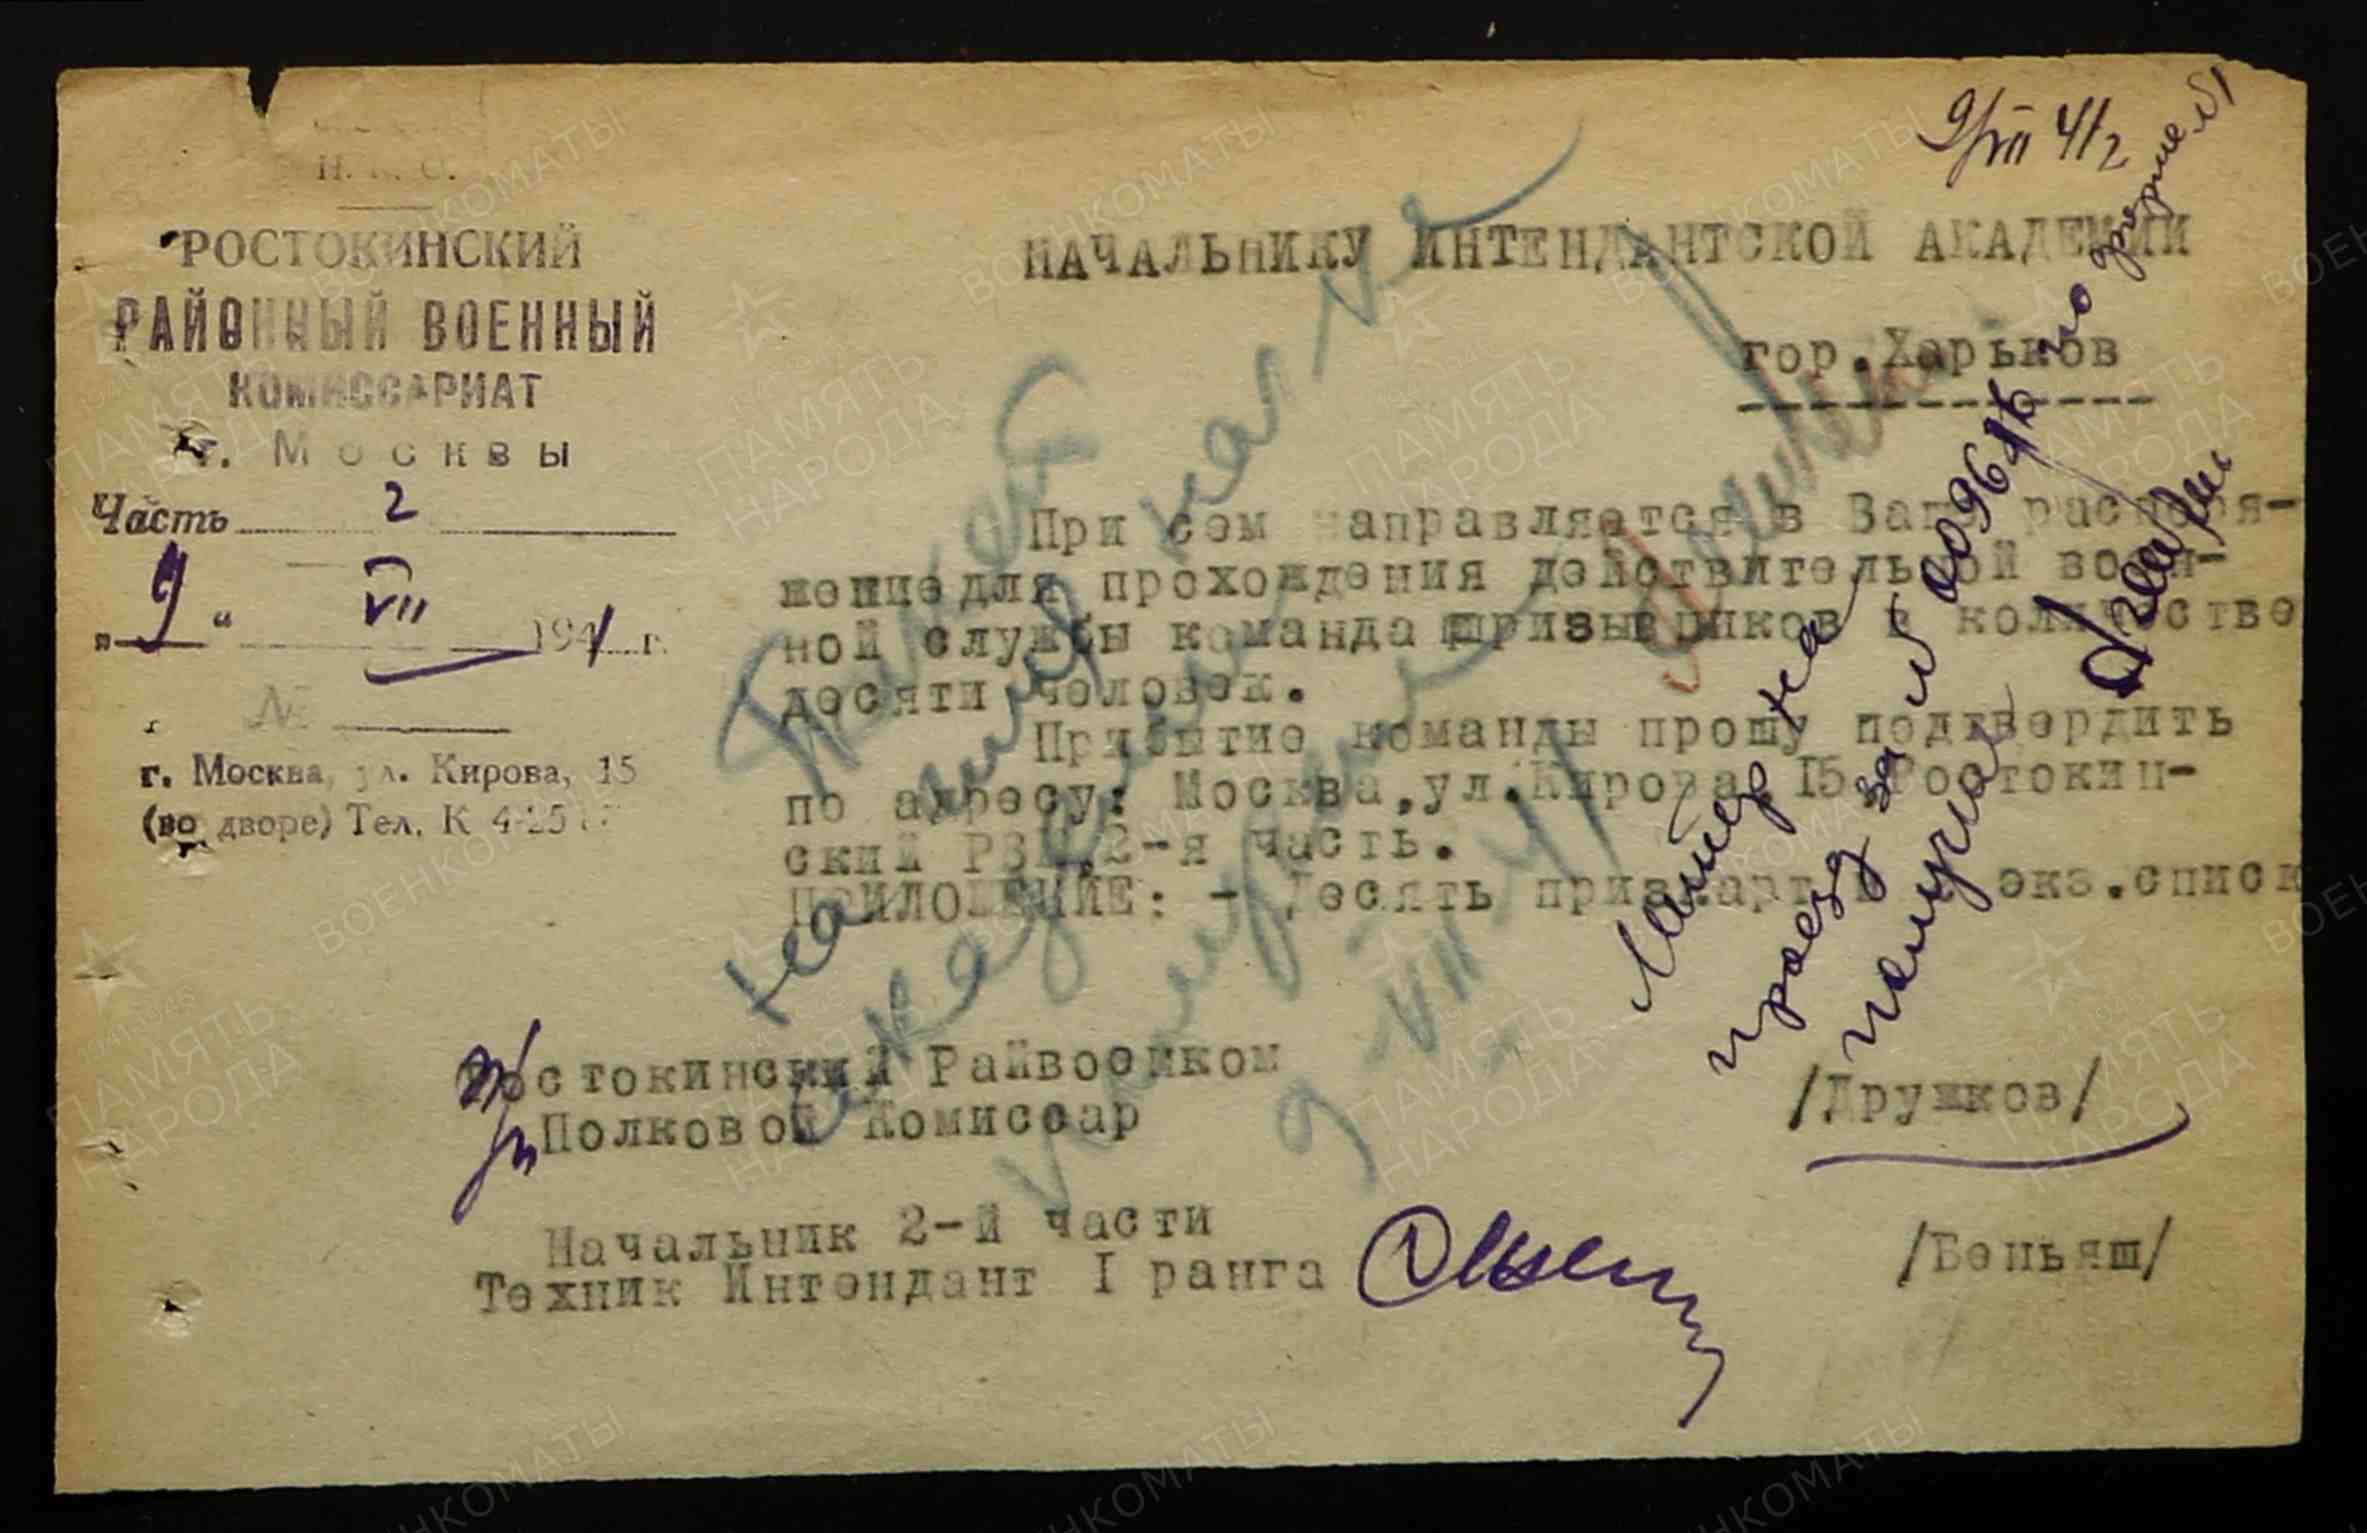 Н. К. О.
РОСТОКИНСКИЙ
РАЙОННЫЙ ВОЕННЫЙ
КОМИССАРИАТ
г. Москвы
Часть 2
"9" VII 1941 г.
№
г. Москва, ул. Кирова, 15
(во дворе) Тел. К 4-25
9/VII 41 г
НАЧАЛЬНИКУ ИНТЕНДАНТСКОЙ АКАДЕМИИ
гор.Харьков
При сем направляется в Ваше распоря-
жениедля прохождения действительной воен-
ной службы команда призывников в количестве
десяти человек.
Прибытие команды прошу подтвердить
по адресу: Москва,ул.Кирова 15,Ростокин-
ский РВК,2-я часть.
ПРИЛОЖЕНИЕ: - Десять приз.карт и экз.списк
Ростокинский Райвоенком
Полковой Комиссар
/Дружков/
Начальник 2-й части
Техник Интендант I ранга
/Беньяш/
Пакет
получил
9-VII-41
Литер на
проезд за №
получил
по форме №1
ПАМЯТЬ НАРОДА
ВОЕНКОМАТЫ